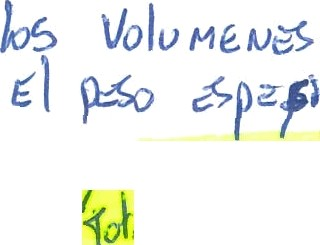 los VOLUMENES
El peso espesi
Tot.